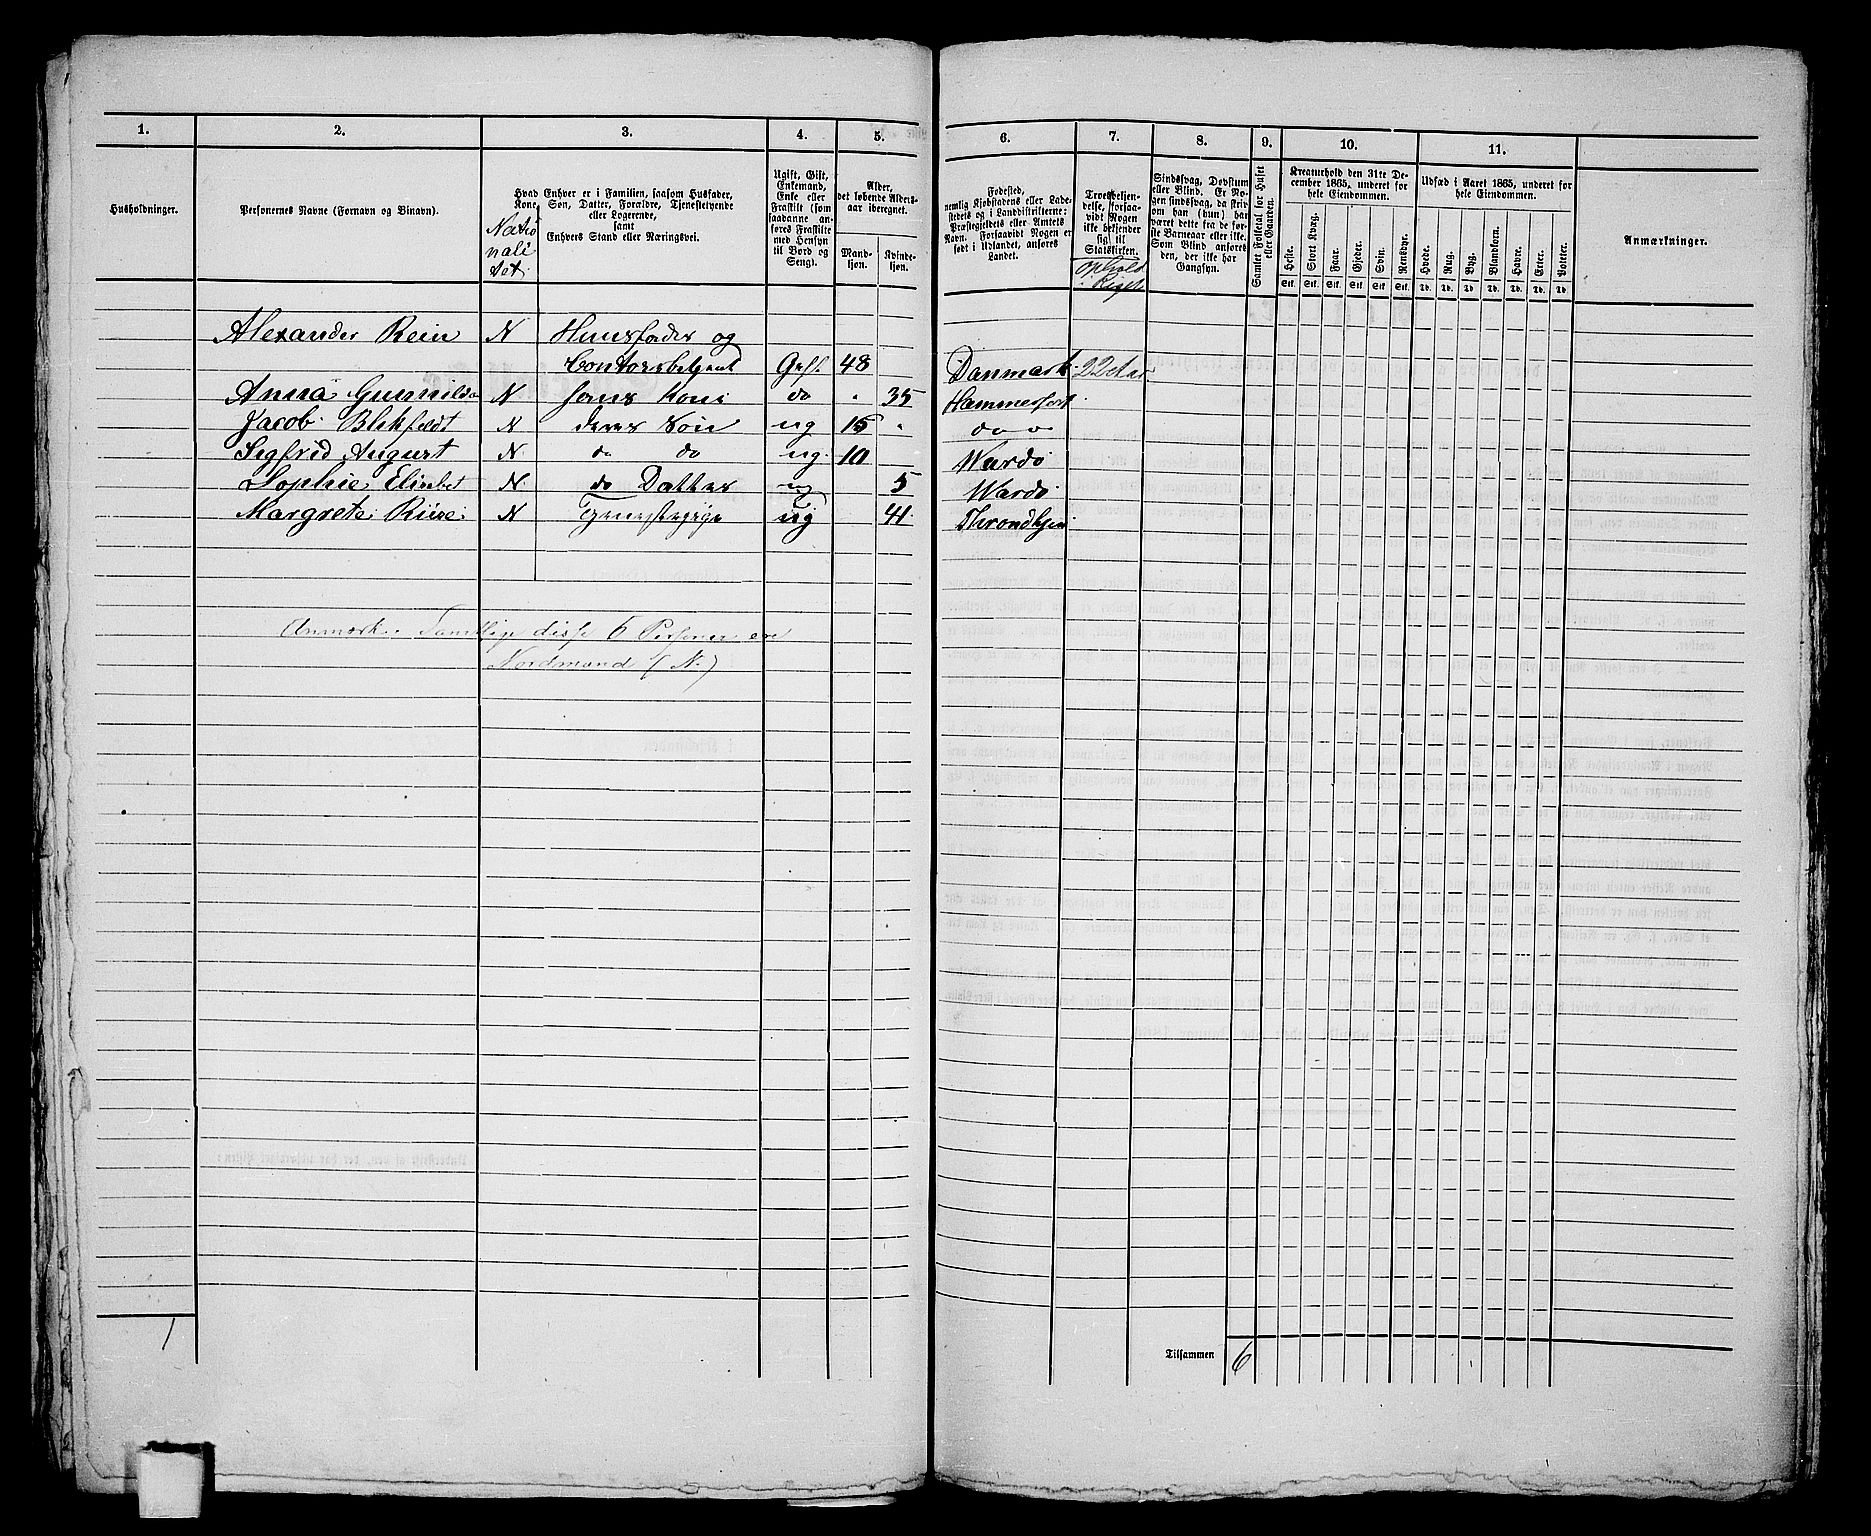 1. 2. 3. 4. 5. 6. 7. 8. 9. 10. 11.
Husholdninger.
Personernes Navne (Fornavn og Binavn).
Hvad Enhver er i Familien, saasom Husfader,
Kone, Søn, Datter, Forældre, Tjenestetyende
eller Logerende,
samt
Enhvers Stand eller Næringsvei.
Natio
nali
tet.
Ugift, Gift,
Enkemand,
Enke eller
Fraskilt (som
saadanne an-
føres Fraskilte
med Hensyn
til Bord og
Seng).
Alder,
det løbende Alders-
aar iberegnet.
Mand-
kjøn.
Kvinde-
kjøn.
Fødested,
nemlig Kjøbstadens eller Lade-
stedets og i Landdistrikterne:
Præstegjeldets eller Amtets
Navn. Forsaavidt Nogen er
født i Udlandet, anføres
Landet.
Troesbekjen-
delse, forsaa-
vidt Nogen
ikke bekjender
sig til
Statskirken.
Ophold
i Riget
Sindssvag, Døvstum
eller Blind. Er No-
gen sindssvag, da skriv
om han (hun) har
været dette fra de før-
ste Barneaar eller ikke.
Som Blind anføres
den, der ikke har
Gangsyn.
Samlet Folketal for Huset
eller Gaarden.
Kreaturhold den 31te De-
cember 1865, underet for
hele Eiendommen.
Heste. Stort Kvæg. Faar. Gjeder. Svin. Rensdyr.
Stk. Stk. Stk. Stk. Stk. Stk.
Udsæd i Aaret 1865, underet for
hele Eiendommen.
Hvede. Rug. Byg. Blandkorn. Havre. Erter. Poteter.
Td. Td. Td. Td. Td. Td. Td.
Anmærkninger.
Alexander Rein N Huusfader og
Contorsbetjent Gift 48 Danmark 22 Aar
Anna Gunnilda N hans Kone do " 35 Hammerfest
Jacob Blikfeldt N deres Søn ug 15 " do
Sigfrid August N do do ug 10 Wardø
Sophie Elisabet N do Datter ug 5 Wardø
Margrete Riise N Tjenestepige ug 41 Throndhjem
Anmærk. Samtlige disse 6 Personer ere
Nordmænd (N.)
1
Tilsammen 6